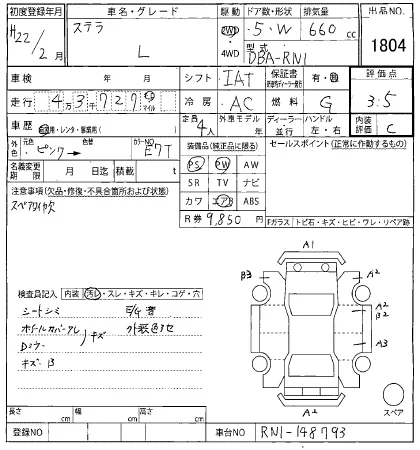 初度登録年月 車名・グレード 駆動 ドア数・形状 排気量 出品NO.
H22/2月 ステラ L 2WD 4WD 5・W 660cc 1804
型式 DBA-RN1
車検 年 月 シフト IAT 保証書 有・無 評価点
走行 43千727 マイル 冷房 AC 燃料 G 3.5
車歴 自家用・レンタ・事業用( ) 定員 4人 外車モデル 年 ディーラー・並行 ハンドル 左・右 内装評価 C
外色 元色 ピンク → 色替 カラーNO E77 装備品(純正品に限る) セールスポイント(正常に作動するもの)
名義変更期限 月 日迄 積載 t PS PW AW
注意事項(欠品・修復・不具合箇所および状態) SR TV ナビ
スペアタイヤ欠 カワ エアB ABS
R券 9,850円
Fガラス トビ石・キズ・ヒビ・ワレ・リペア跡
A1
B3 A2
検査員記入 内装 汚レ・スレ・キズ・キレ・コゲ・穴
A2
B2
シートシミ 外装色アセ
ホイールカバーアレ キズ A3
Dミラー
キズ B
A2 スペア
長さ cm 幅 cm 高さ cm
登録NO 車台NO RN1-148793